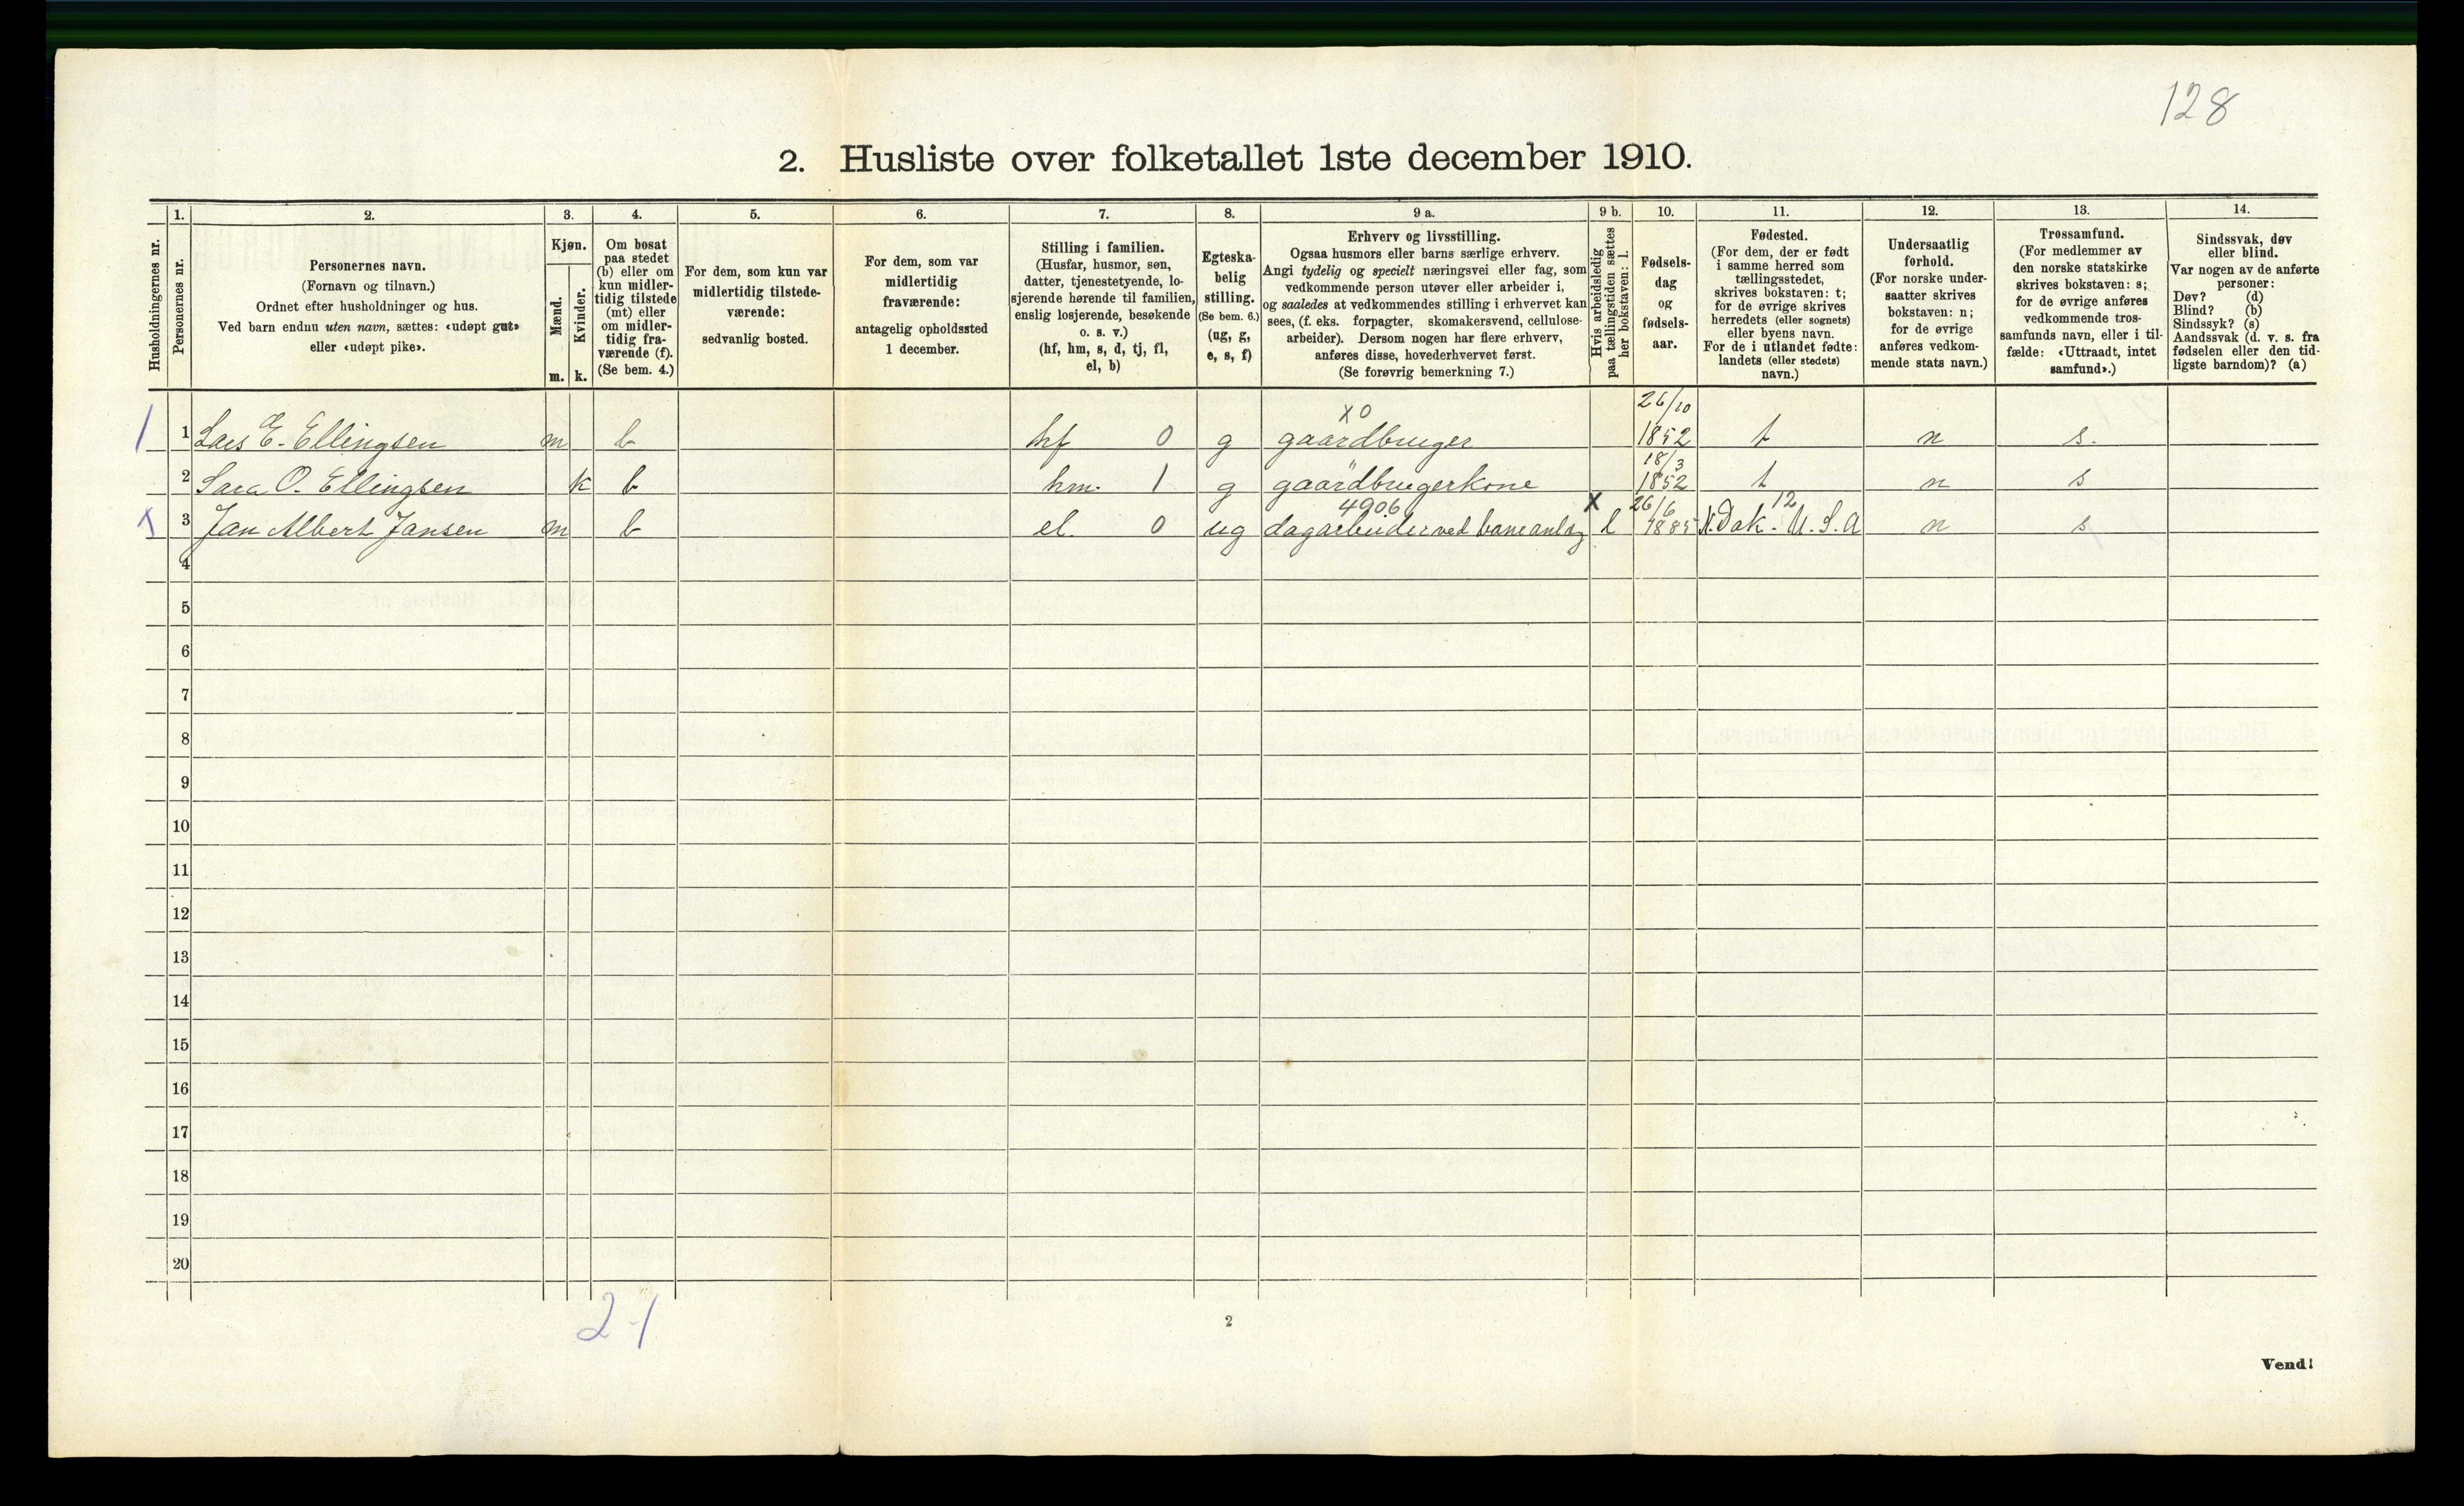 128
2. Husliste over folketallet 1ste december 1910.
Husholdningernes nr.
1.
Personernes nr.
2.
Personernes navn.
(Fornavn og tilnavn.)
Ordnet efter husholdninger og hus.
Ved barn endnu uten navn, sættes: «udøpt gut»
eller «udøpt pike».
3.
Kjøn.
Mænd.
m.
Kvinder.
k.
4.
Om bosat
paa stedet
(b) eller om
kun midler-
tidig tilstede
(mt) eller
om midler-
tidig fra-
værende (f).
(Se bem. 4.)
5.
For dem, som kun var
midlertidig tilstede-
værende:
sedvanlig bosted.
6.
For dem, som var
midlertidig
fraværende:
antagelig opholdssted
1 december.
7.
Stilling i familien.
(Husfar, husmor, søn,
datter, tjenestetyende, lo-
sjerende hørende til familien,
enslig losjerende, besøkende
o. s. v.)
(hf, hm, s, d, tj, fl,
el, b)
8.
Egteska-
belig
stilling.
(Se bem. 6.)
(ug, g,
e, s, f)
9 a.
Erhverv og livsstilling.
Ogsaa husmors eller barns særlige erhverv.
Angi tydelig og specielt næringsvei eller fag, som
vedkommende person utøver eller arbeider i,
og saaledes at vedkommendes stilling i erhvervet kan
sees, (f. eks. forpagter, skomakersvend, cellulose-
arbeider). Dersom nogen har flere erhverv,
anføres disse, hovederhvervet først.
(Se forøvrig bemerkning 7.)
9 b.
Hvis arbeidsledig
paa tællingstiden sættes
her bokstaven: l.
10.
Fødsels-
dag
og
fødsels-
aar.
11.
Fødested.
(For dem, der er født
i samme herred som
tællingsstedet,
skrives bokstaven: t;
for de øvrige skrives
herredets (eller sognets)
eller byens navn.
For de i utlandet fødte:
landets (eller stedets)
navn.)
12.
Undersaatlig
forhold.
(For norske under-
saatter skrives
bokstaven: n;
for de øvrige
anføres vedkom-
mende stats navn.)
13.
Trossamfund.
(For medlemmer av
den norske statskirke
skrives bokstaven: s;
for de øvrige anføres
vedkommende tros-
samfunds navn, eller i til-
fælde: «Uttraadt, intet
samfund».)
14.
Sindssvak, døv
eller blind.
Var nogen av de anførte
personer:
Døv? (d)
Blind? (b)
Sindssyk? (s)
Aandssvak (d. v. s. fra
fødselen eller den tid-
ligste barndom)? (a)
X0 26/10
1 1 Lars E. Ellingsen m b hf 0 g gaardbruger 1852 t n s.
18/3
2 Sara O. Ellingsen k b hm. 1 g gaardbrugerkone 1852 t n s
4906 X 26/6 12
X 3 Jan Albert Jansen m b el. 0 ug dagarbeider ved baneanlæg l 1885 N. Dak. U. S. A n s
4
5
6
7
8
9
10
11
12
13
14
15
16
17
18
19
20
2-1
2
Vend!